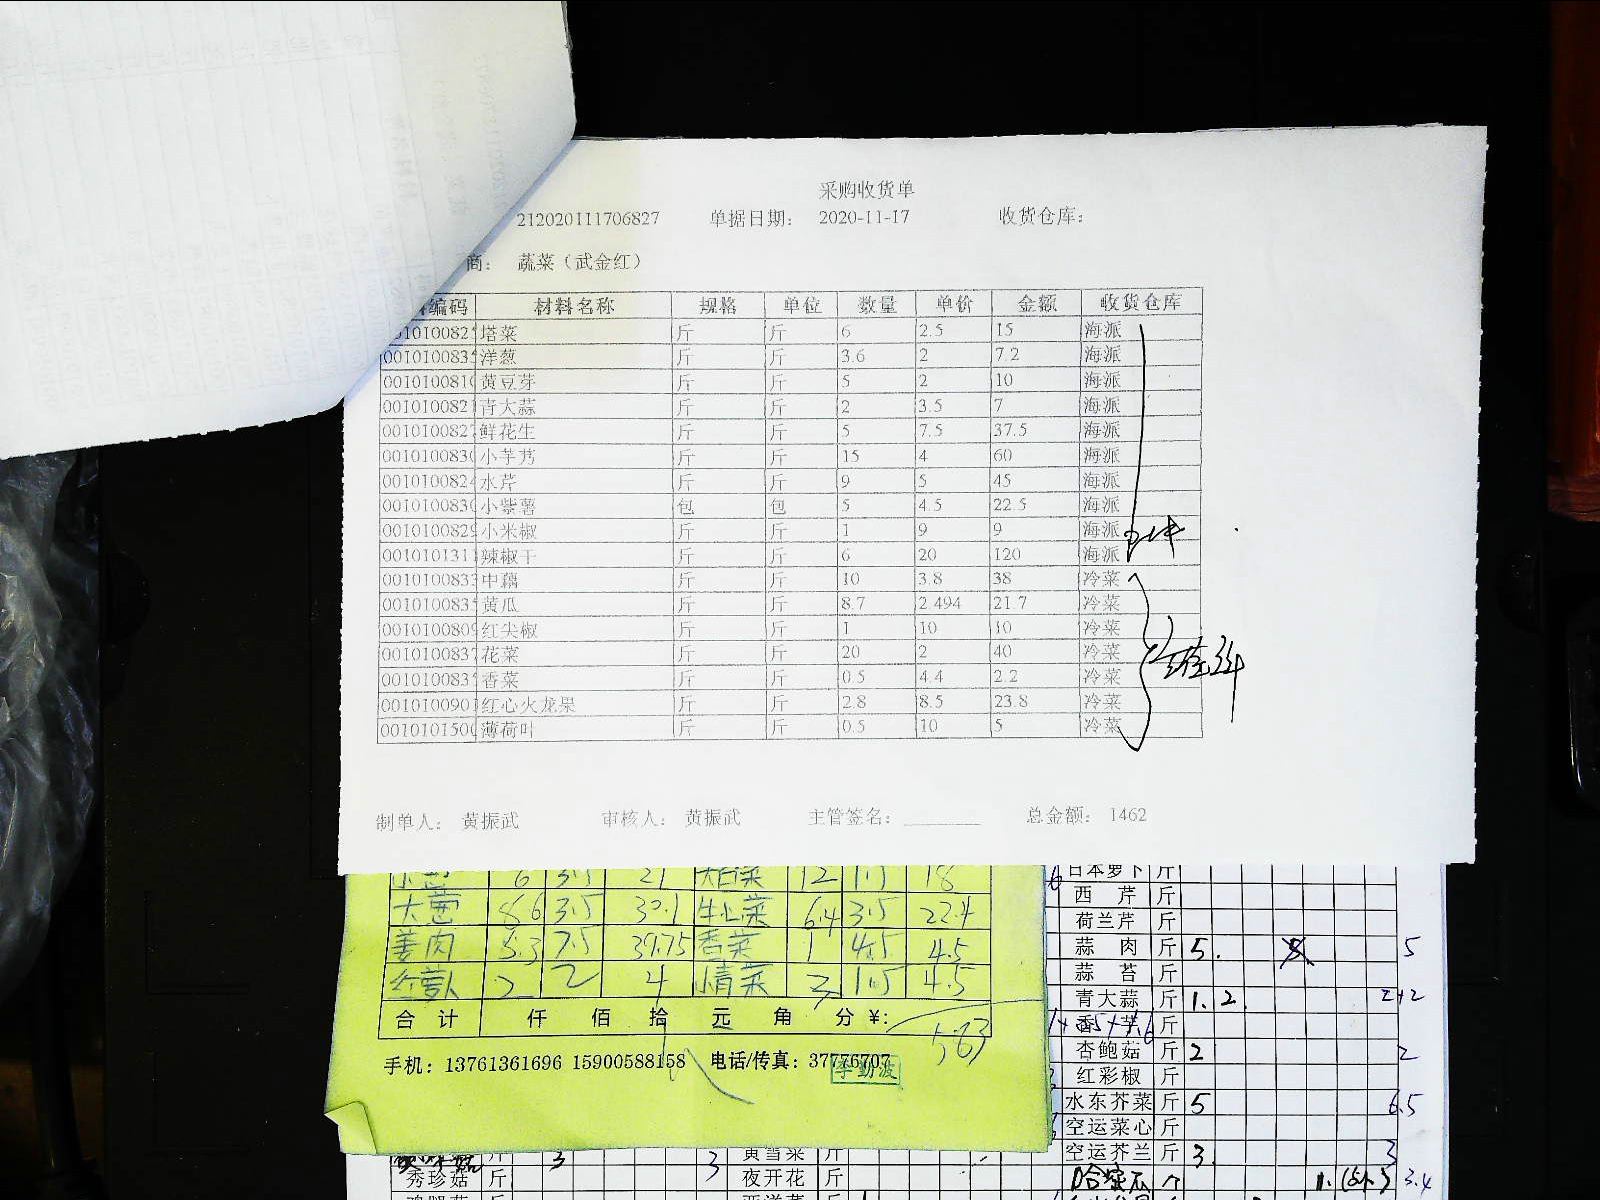 采购收货单
212020111706827 单据日期： 2020-11-17 收货仓库：
商： 蔬菜（武金红）
编码 材料名称 规格 单位 数量 单价 金额 收货仓库
塔菜 斤 斤 6 2.5 15 海派
001010083 洋葱 斤 斤 3.6 2 7.2 海派
001010081 黄豆芽 斤 斤 5 2 10 海派
001010082 青大蒜 斤 斤 2 3.5 7 海派
001010082 鲜花生 斤 斤 5 7.5 37.5 海派
001010083 小芋艿 斤 斤 15 4 60 海派
001010082 水芹 斤 斤 9 5 45 海派
001010083 小紫薯 包 包 5 4.5 22.5 海派
001010082 小米椒 斤 斤 1 9 9 海派
001010131 辣椒干 斤 斤 6 20 120 海派
001010083 中藕 斤 斤 10 3.8 38 冷菜
001010083 黄瓜 斤 斤 8.7 2.494 21.7 冷菜
001010080 红尖椒 斤 斤 1 10 10 冷菜
001010083 花菜 斤 斤 20 2 40 冷菜
001010083 香菜 斤 斤 0.5 4.4 2.2 冷菜
001010090 红心火龙果 斤 斤 2.8 8.5 23.8 冷菜
001010150 薄荷叶 斤 斤 0.5 10 5 冷菜
制单人： 黄振武 审核人： 黄振武 主管签名： 总金额： 1462
6 3.5 21 大白菜 12 1.5 18
大葱 8.6 3.5 30.1 生菜 6.4 3.5 22.4
姜肉 5.3 7.5 39.75 香菜 1 4.5 4.5
2 2 4 青菜 3 1.5 4.5
合计 仟 佰 拾 元 角 分 ¥: 583
手机：13761361696 15900588158 电话/传真：37776707
李勤波
日本萝卜 斤
西芹 斤
荷兰芹 斤
蒜肉 斤 5. 5
蒜苔 斤
青大蒜 斤 1.2. 2+2
香芋 斤
杏鲍菇 斤 2 2
红彩椒 斤
水东芥菜 斤 5 6.5
空运菜心 斤
空运芥兰 斤 3. 3
斤 3 3 黄雪菜 斤
秀珍菇 斤 夜开花 斤 哈密瓜 个 3.4